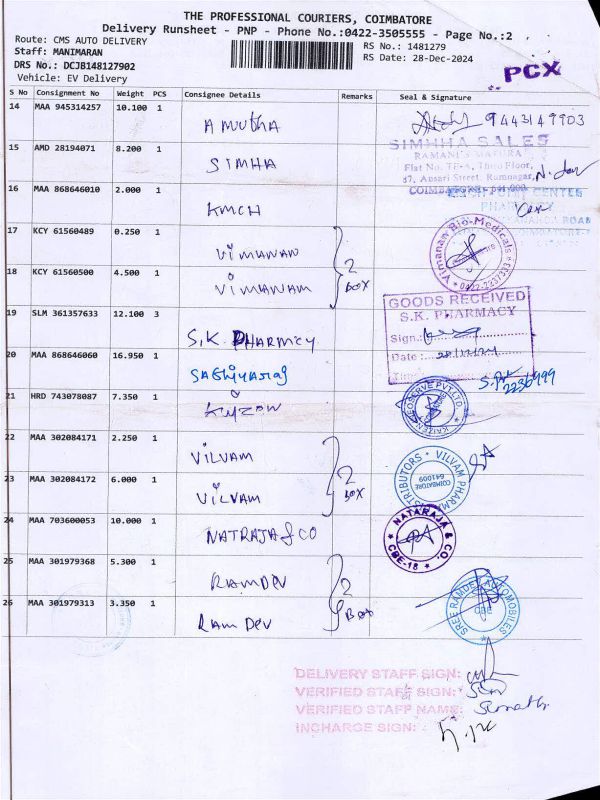 THE PROFESSIONAL COURIERS, COIMBATORE
Delivery Runsheet - PNP - Phone No.:0422-3505555 - Page No.:2
Route: CMS AUTO DELIVERY
RS No.: 1481279
Staff: MANIMARAN
RS Date: 28-Dec-2024
DRS No.: DCJB148127902
Vehicle: EV Delivery
PCX
S No Consignment No Weight PCS Consignee Details Remarks Seal & Signature
14 MAA 945314257 10.100 1 Amutha 9443149903
15 AMD 28194071 8.200 1 SIMHA
SIMHHA SALES
Flat No. TF-4, Third Floor,
87, Ansari Street, Ramnagar,
16 MAA 868646010 2.000 1 KMCH
PHARMACY
17 KCY 61560489 0.250 1 VIMANAN
Vimanam Bio-Medicals
0422-2237333
18 KCY 61560500 4.500 1 VIMANAM
2 BOX
19 SLM 361357633 12.100 3 S.K. PHARMCY
GOODS RECEIVED
S.K. PHARMACY
Sign.:
Date : 28/12/24
20 MAA 868646060 16.950 1 SAthiyaraj
2236999
21 HRD 743078087 7.350 1 Kyzon
22 MAA 302084171 2.250 1 VILVAM
VILVAM PHARMA DISTRIBUTORS
COIMBATORE
641009
23 MAA 302084172 6.000 1 VILVAM
2 BOX
24 MAA 703600053 10.000 1 NATRAJA & CO
NATARAJA & CO.
CBE-18
25 MAA 301979368 5.300 1 RAMDEV
26 MAA 301979313 3.350 1 RAM DEV
2 Box
SREE RAMDEV AUTOMOBILES
CBE
DELIVERY STAFF SIGN:
VERIFIED STAFF SIGN:
VERIFIED STAFF NAME:
INCHARGE SIGN: